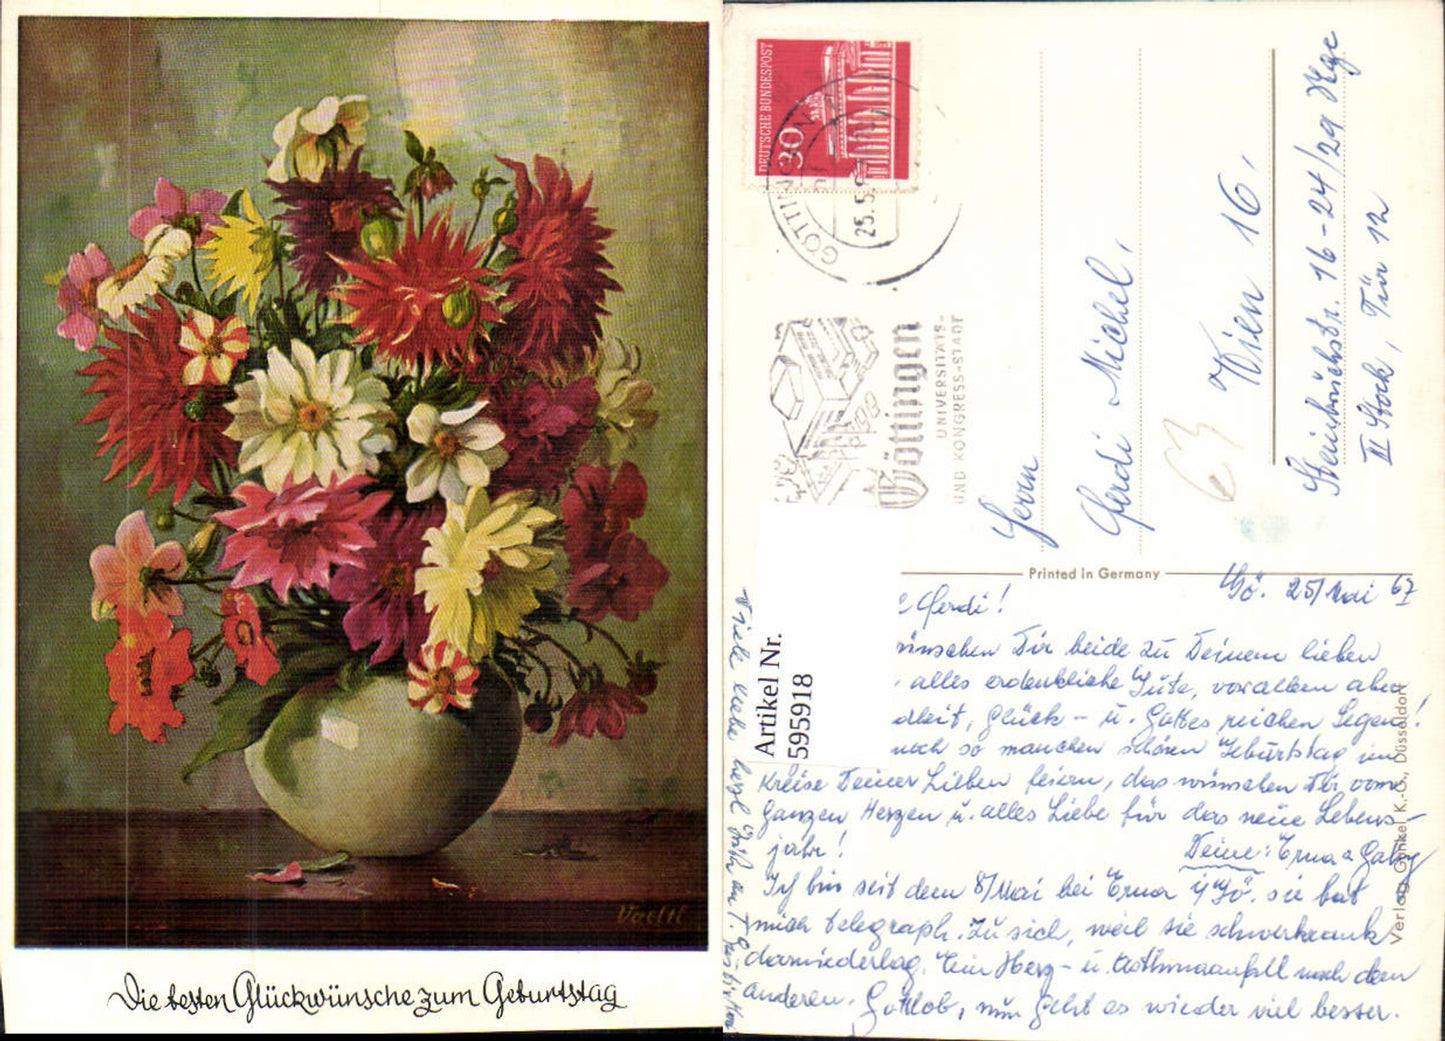 Vaeltl
Die besten Glückwünsche zum Geburtstag
DEUTSCHE BUNDESPOST
30
GÖTTINGEN
25.5.
Göttingen
UNIVERSITÄTS-
UND KONGRESS-STADT
Herrn
Gerdi Michel,
Wien 16,
Steinbruchstr. 16-24/29 Stge
II Stock, Tür 12
63
Printed in Germany
Verlag Günkel K.-G., Düsseldorf
Artikel Nr.
595918
Gö. 25/Mai 67
Gerdi!
wünschen Dir beide zu Deinem lieben
, alles erdenkliche Gute, vor allem aber
dheit, Glück - u. Gottes reichen Segen!
noch so manchen schönen Geburtstag im
Kreise Deiner Lieben feiern, das wünschen Dir vom
ganzen Herzen u. alles Liebe für das neue Lebens-
jahr!
Deine: Erna u Gaby
Ich bin seit dem 8/Mai bei Erna i/Gö. sie hat
mich telegraph. zu sich, weil sie schwerkrank
darniederlag. Ein Herz- u. Asthmaanfall nach dem
anderen. Gottlob, nun geht es wieder viel besser.
Viele liebe herzl Grüße an